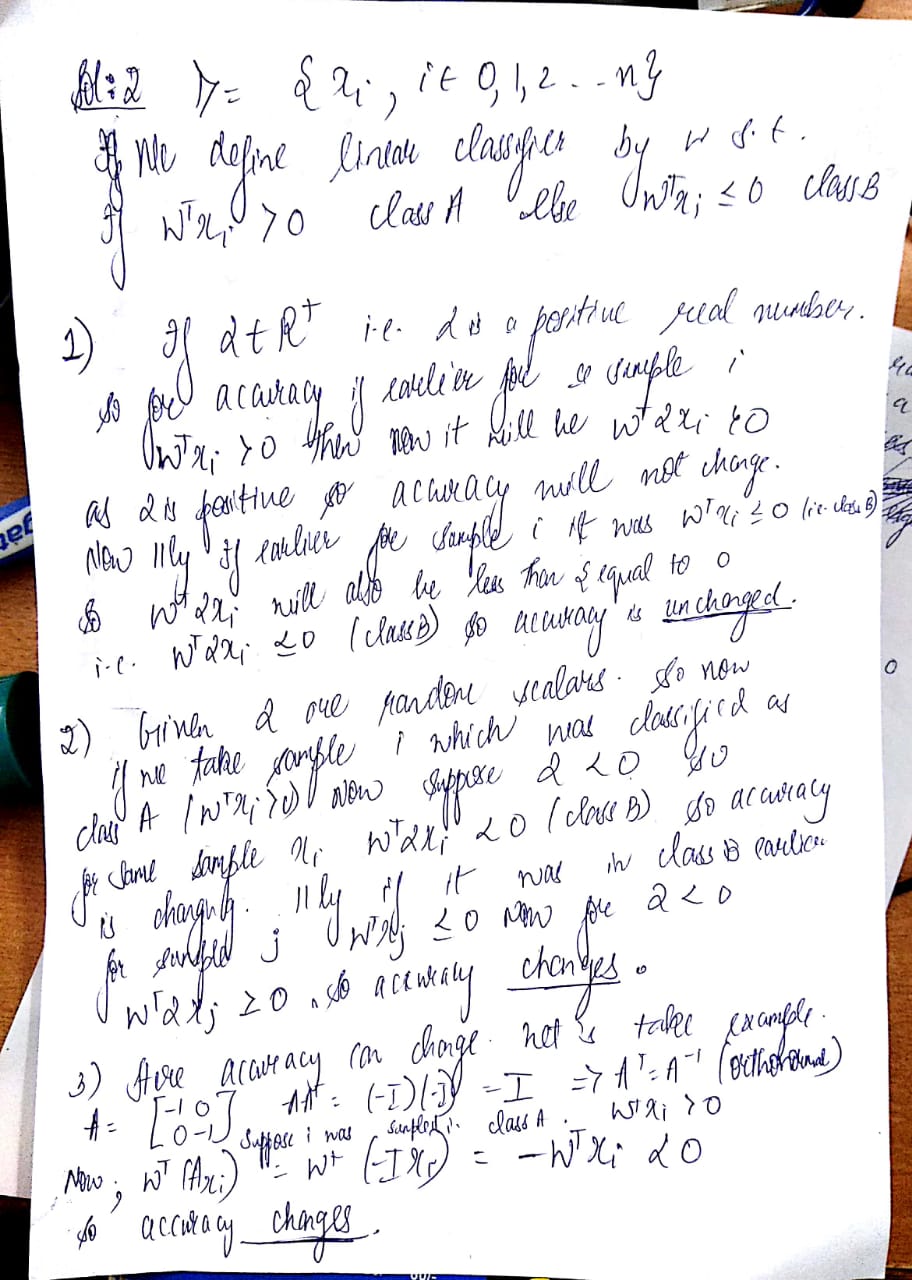 Sol:2 D = { xi, i ∈ 0, 1, 2 . . . n}
If We define linear classifier by w s.t.
If wᵀxi > 0 class A else wᵀxi ≤ 0 class B
1) If α ∈ R⁺ i.e. α is a positive real number.
so for accuracy if earlier for a sample i
wᵀxi > 0 then new it will be wᵀαxi > 0
as α is positive so accuracy will not change.
Now lly if earlier for sample i it was wᵀxi ≤ 0 (i.e. class B)
So wᵀαxi will also be less than & equal to 0
i.e. wᵀαxi ≤ 0 (class B) so accuracy is unchanged.
2) Given α are random scalars. So now
if we take sample i which was classified as
class A (wᵀxi > 0) Now suppose α < 0 so
for same sample xi wᵀαxi < 0 (class B) so accuracy
is changing. lly if it was in class B earlier
for sample j wᵀxj ≤ 0 Now for α < 0
wᵀαxj ≥ 0, so accuracy changes.
3) Here accuracy can change. Let's take example.
A = [-1 0 AAᵀ = (-I)(-I) = I => Aᵀ = A⁻¹ (orthonormal)
0 -1] Suppose i was sampled in class A. wᵀxi > 0
Now, wᵀ(Axi) = wᵀ(-Ixi) = -wᵀxi < 0
so accuracy changes.